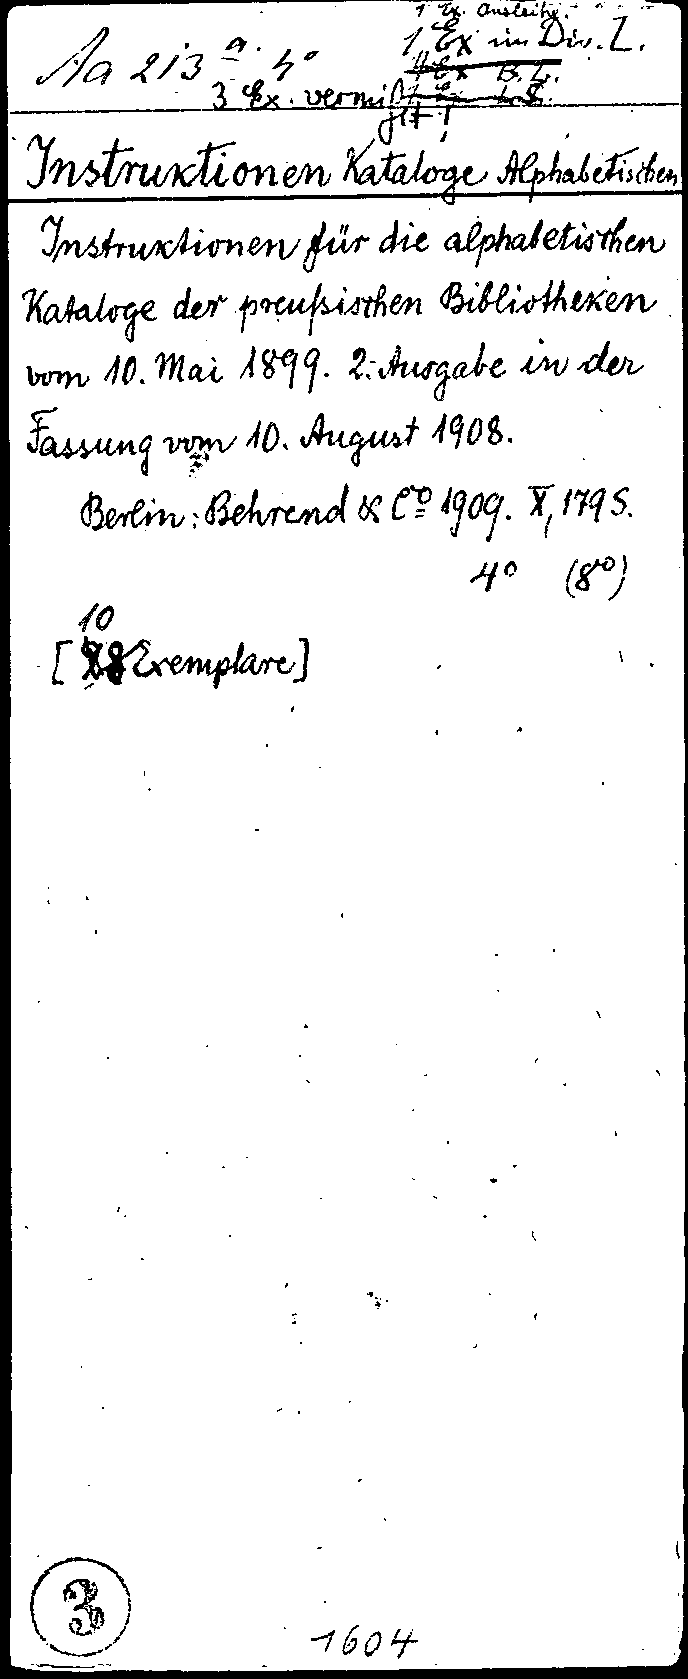 1 Ex. Ausleihe.
1 Ex im Dir. Z.
Aa 213 a. 4°
Ex B. Z.
3 Ex. vermißt
Instruktionen Kataloge Alphabetischen
Instruktionen für die alphabetischen
Kataloge der preußischen Bibliotheken
vom 10. Mai 1899. 2. Ausgabe in der
Fassung vom 10. August 1908.
Berlin: Behrend & Co 1909. X, 179 S.
4° (8°)
10
[ Exemplare]
3
1604